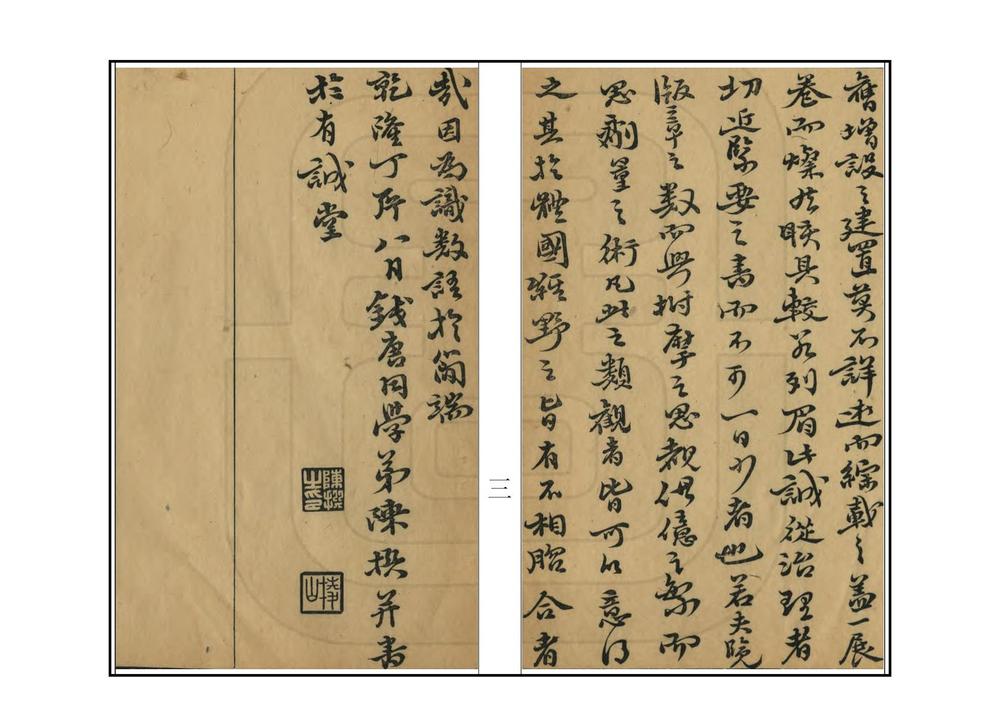 舊增設之建置莫不詳述而綜載之蓋一展
卷而燦然眹具較若列眉此誠從治理者
切近緊要之書而不可一日少者也若夫覽
版章之數而興拊摩之思覩供億之繁而
思劑量之術凡此之類觀者皆可以意得
之其於體國經野之旨有不相脗合者
三
哉因爲識數語於簡端
乾隆丁卯八月錢唐同學弟陳撰并書
於有誠堂
陳撰之印